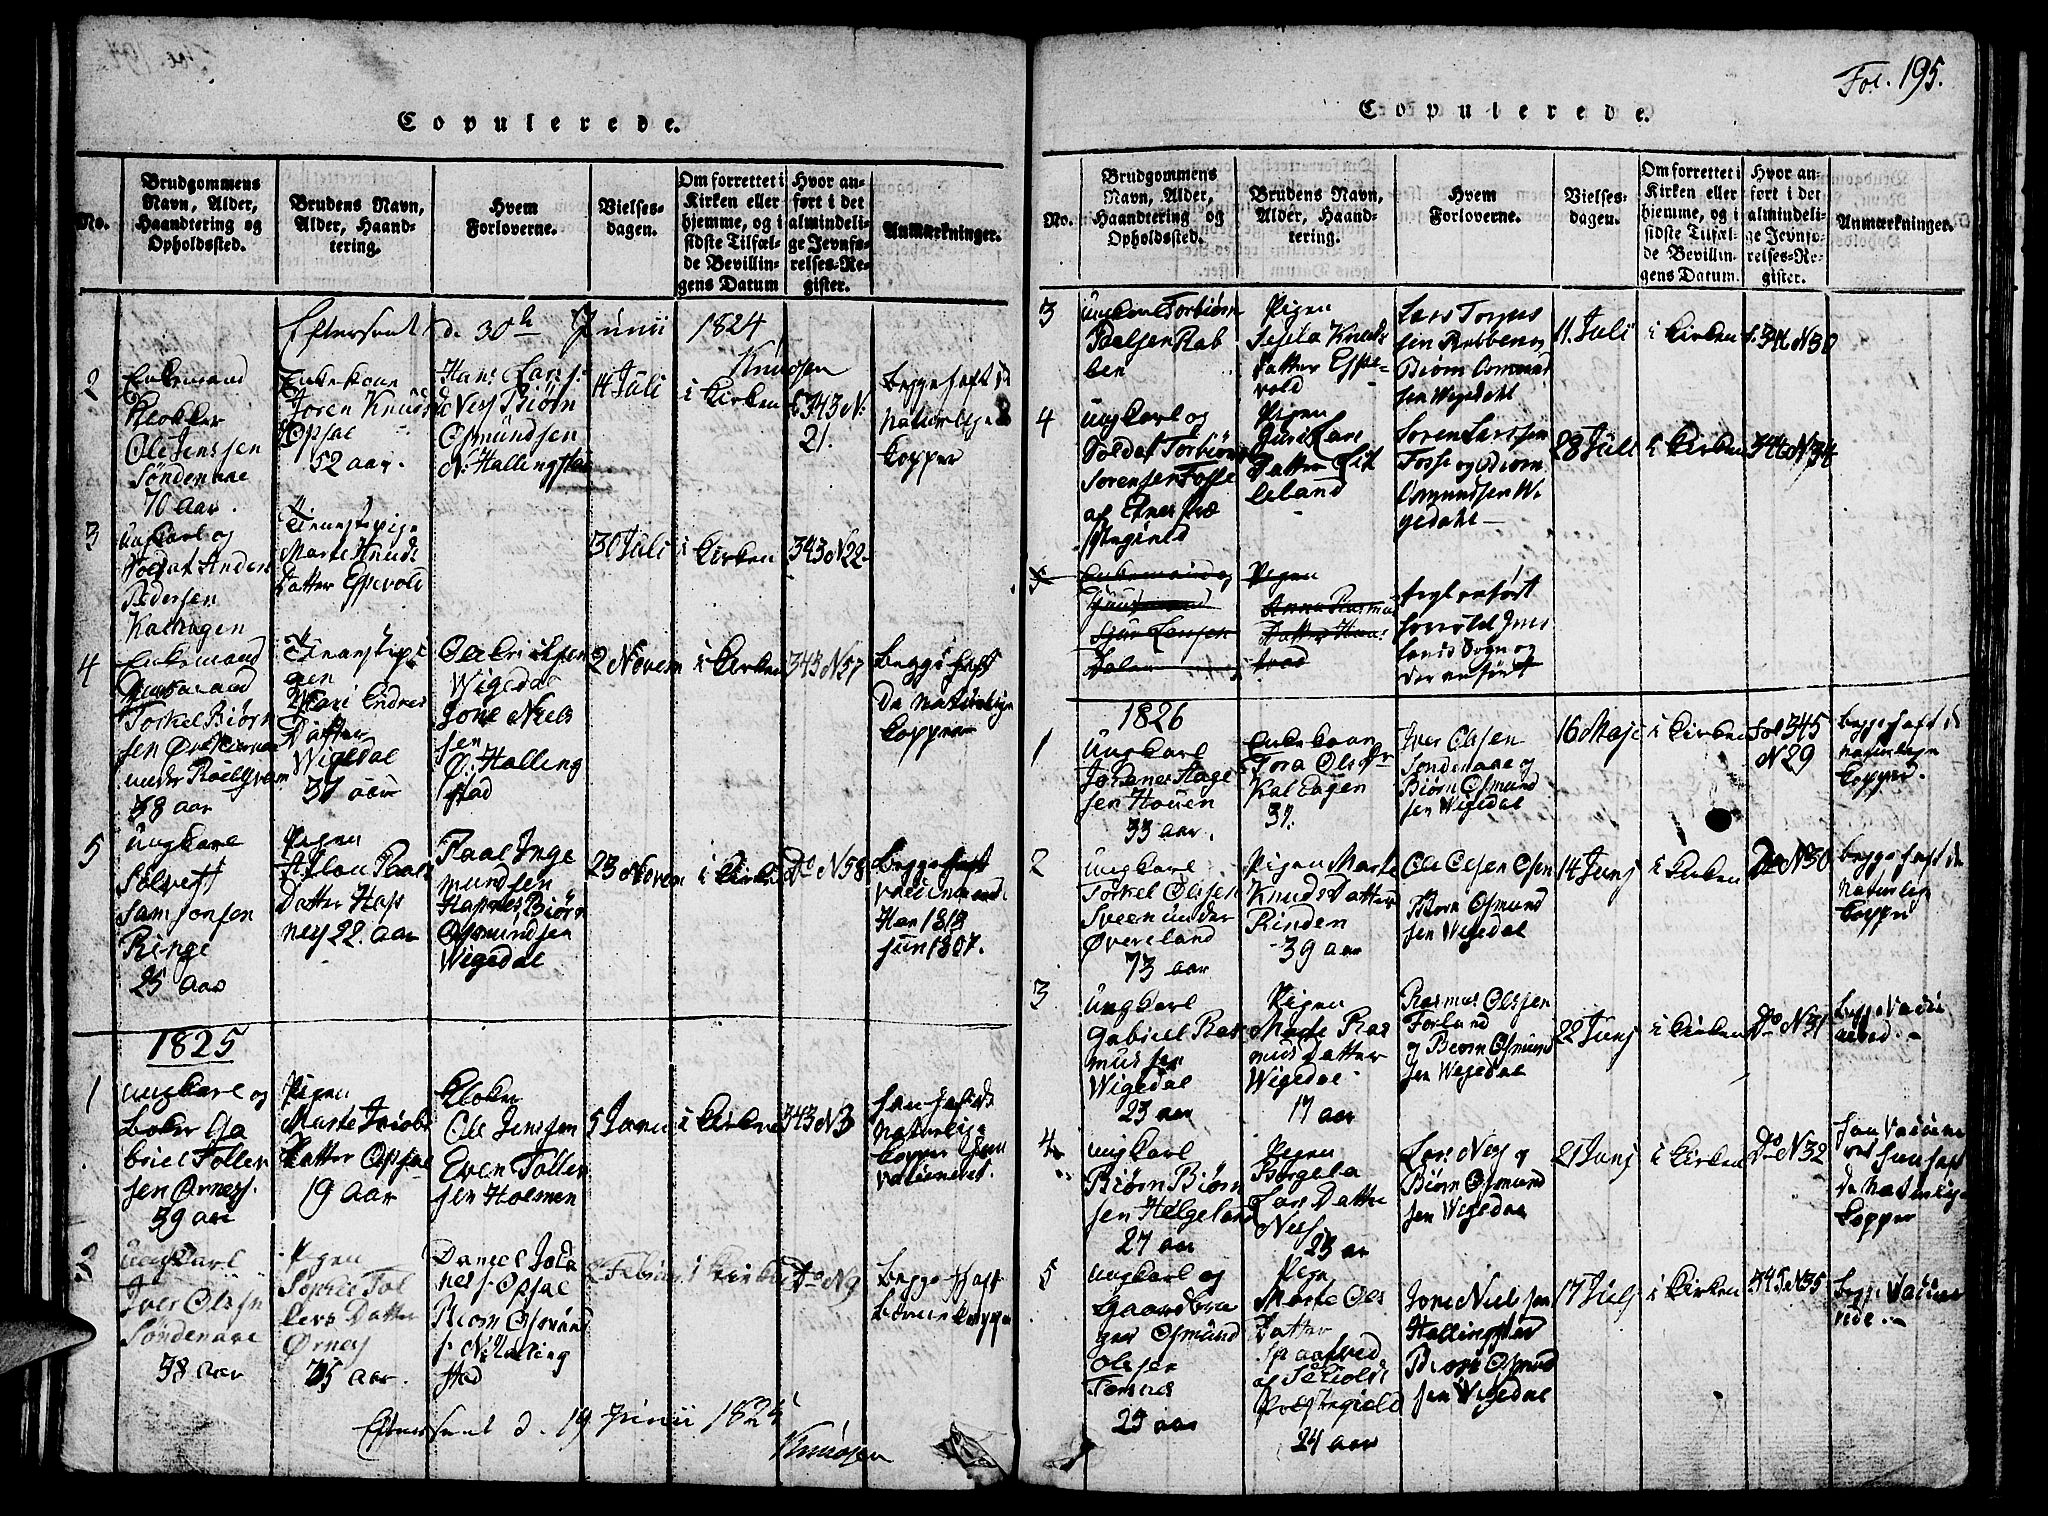 Fol. 195.
Copulerede.
No.
Brudgommens Navn, Alder, Haandtering og Opholdssted.
Brudens Navn, Alder, Haandtering.
Hvem Forloverne.
Vielsesdagen.
Om forrettet i Kirken eller hjemme, og i sidste Tilfælde Bevillingens Datum
Hvor anført i det almindelige Jevnførelses-Register.
Anmærkninger.
Efterseet d. 30th Junii 1824
Knudsen
2
Enkemand
Klokker
Ole Jenssen
Søndenaae
70 Aar.
Enkekone
Joren Knuds
Opsal
52 aar.
Hans Lars
Nes Biørn
Osmundsen
N: Hallingstad
14 Juli
i Kirken
343 N:
21.
begge haft de
naturlige
Kopper
3
ungkarl og
Soldat Anders
Pedersen
Kalhagen
Tienestepige
Marte Knuds
Datter Espevold
30 Juli
i Kirken
343 N22
4
Enkemand
Torkel Biørn
sen
under
38 aar
Tienestepi
gen
Mari Endres
Datter
Wigedal
37 aar
Ole Erichsen
Wigedal
Jone Niels
sen
Ø: Halling
stad
2 Novem
i Kirken
343 N57
begge haft
De naturlige
Kopper
5
ungkarl
Sølvest
Samsonsen
Ringe
25 aar
Pigen
Paals
Datter Hap
nes 22. aar
Paal Inge
mundsen
Hapnes Biørn
Osmundsen
Wigedal
23 Novem
i Kirken
Do N58
begge
Han 1818
hun 1807.
1825
1
ungkarl og
Gabriel Toller
sen Ørnes.
39 aar
Pigen
Marte Jacobs
Datter Opsal
19 Aar
Kloker
Ole Jenssen
Even Toller
sen Holmen
5 Janu
i Kirken
343 N3
han hafde
Naturlige
Kopper hun
vaccineret.
2
ungkarl
Iver Olssen
Søndenaae
38 aar
Pigen
Tol
lers Datter
Ørnes
25 aar.
Daniel Joha
nes s. Opsal
Biørn Osmund
s. N: Halling
stad
2 Februar
i Kirken
Do N9
begge haft
Kopper
Efterseet d. 19 Junii 1825
Knudsen
Copulerede.
No.
Brudgommens Navn, Alder, Haandtering og Opholdssted.
Brudens Navn, Alder, Haandtering.
Hvem Forloverne.
Vielsesdagen.
Om forrettet i Kirken eller hjemme, og i sidste Tilfælde Bevillingens Datum.
Hvor anført i det almindelige Jevnførelses-Register.
Anmærkninger.
3
ungkarl Torbiørn
Paalsen Rab
ben
Pigen
Sesela Knuds
Datter Espe-
vold
Lars Torgus
sen Rabben og
Biørn Osmund
sen Wigedahl
11. Juli
i Kirken
346 N30
4
ungkarl og
Soldat Torbiørn
Sørensen Fosse
af Etnes Præ
stegield
Pigen
Guri Lars
Datter Lit
leland
Søren Larssen
Fosse og Biørn
Osmundsen Wi
gedahl
28 Juli
i Kirken
346 N34
5
Enkemand og
Huusmand
Dalen
Pigen
Anna Rasmus
Datter
feyl anført
Sogn og
der anført
1826
1
ungkarl
Johannes Aage
sen Houen
33 aar.
Enkekone
Tora Ols Dr
Kalhagen
37.
Iver Olssen
Søndenaae og
Biørn Osmund
sen Wigedal
16 Maji
i Kirken
fol 345
N29
begge haft de
naturlige
Kopper.
2
ungkarl
Torkel Olssen
Sveen under
Øvreland
73 aar
Pigen Marte
Knuds Datter
Rinden
39 aar
Ole Olsen
Biørn Osmund
sen Wigedal
14 Junj
i Kirken
Do N30
begge haft de
Naturlige
Kopper
3
ungkarl
Gabriel Ras
mussen
Wigedal
23 aar
Pigen
Marte Ras
mus Datter
Wigedal
17 aar
Rasmus Olssen
Forland
og Biørn Osmund
sen Wigedal
22 Junj
i Kirken
Do N31
begge Vacci
nered.
4
ungkarl
Biørn Biørn
sen Helgeland
27 aar
Pigen
Borgela
Lars Datter
Nes
23 aar
Lars Nes og
Biørn Osmund
sen Wigedal
21 Junj
i Kirken
Do N32
han Vaccine
ret hun haft
De Naturlige
Kopper
5
ungkarl og
Gaardbru
ger Osmund
Olssen
29 aar
Pigen
Marte Ols
Datter
Præstegield
24 aar
Jone Nielsen
Hallingstad
Biørn Osmund
sen Wigedal
17 Julj
i Kirken
345 N35
begge Vaccine
rede.